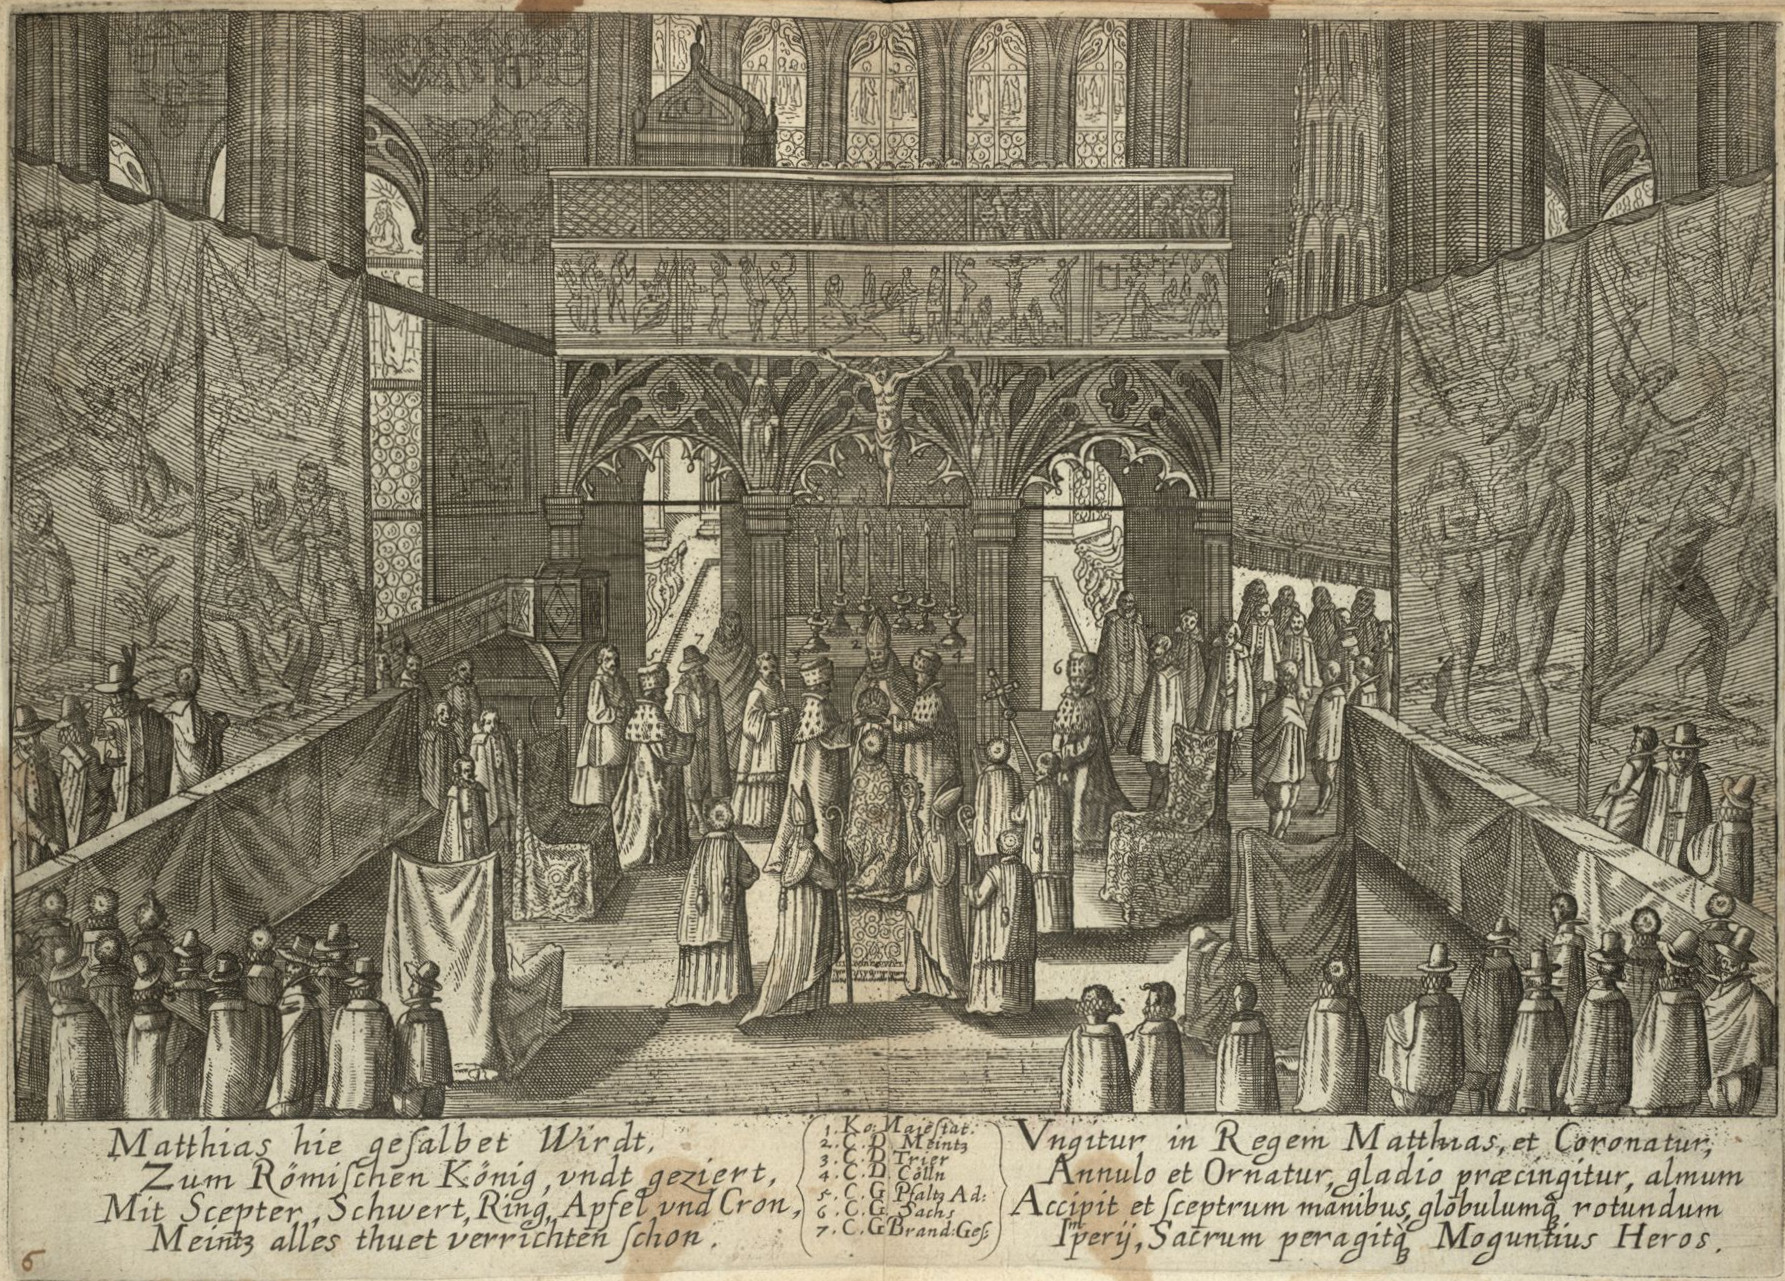 Matthias hie gesalbet Wirdt,
Zum Römischen König, vndt geziert,
Mit Scepter, Schwert, Ring, Apfel vnd Cron,
Meintz alles thuet verrichten schon.
1. Ko: Maiestat.
2. C. D. Meintz
3. C. D. Trier
4. C. D. Cölln
5. C. G Pfaltz Ad:
6. C. G. Sachs
7. C. G Brand: Ges:
Vngitur in Regem Matthias, et Coronatur,
Annulo et Ornatur, gladio præcingitur, almum
Accipit et sceptrum manibus, globulumqꝫ rotundum
Imperÿ, Sacrum peragitqꝫ Moguntius Heros.
7
2
4
6
6